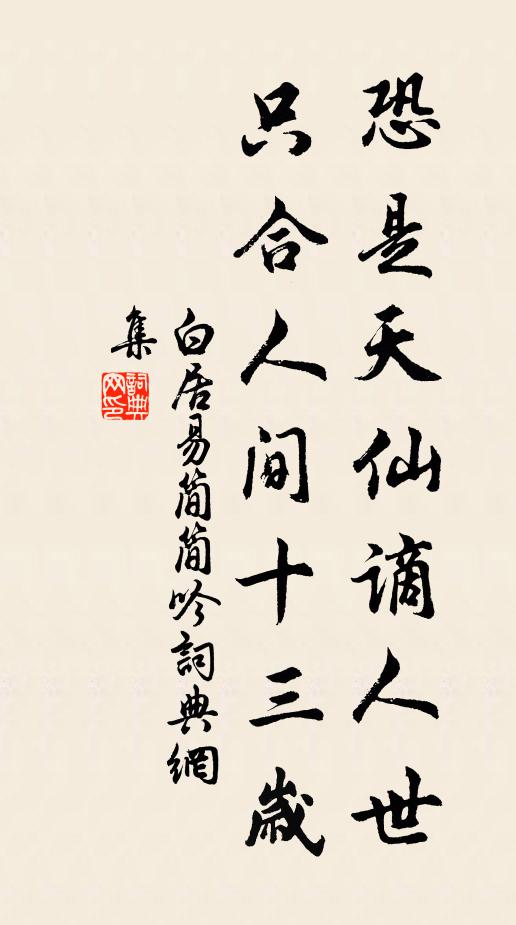 恐是天仙谪人世
只合人间十三歲
白居易简简吟詞典網
集
詞典
网印